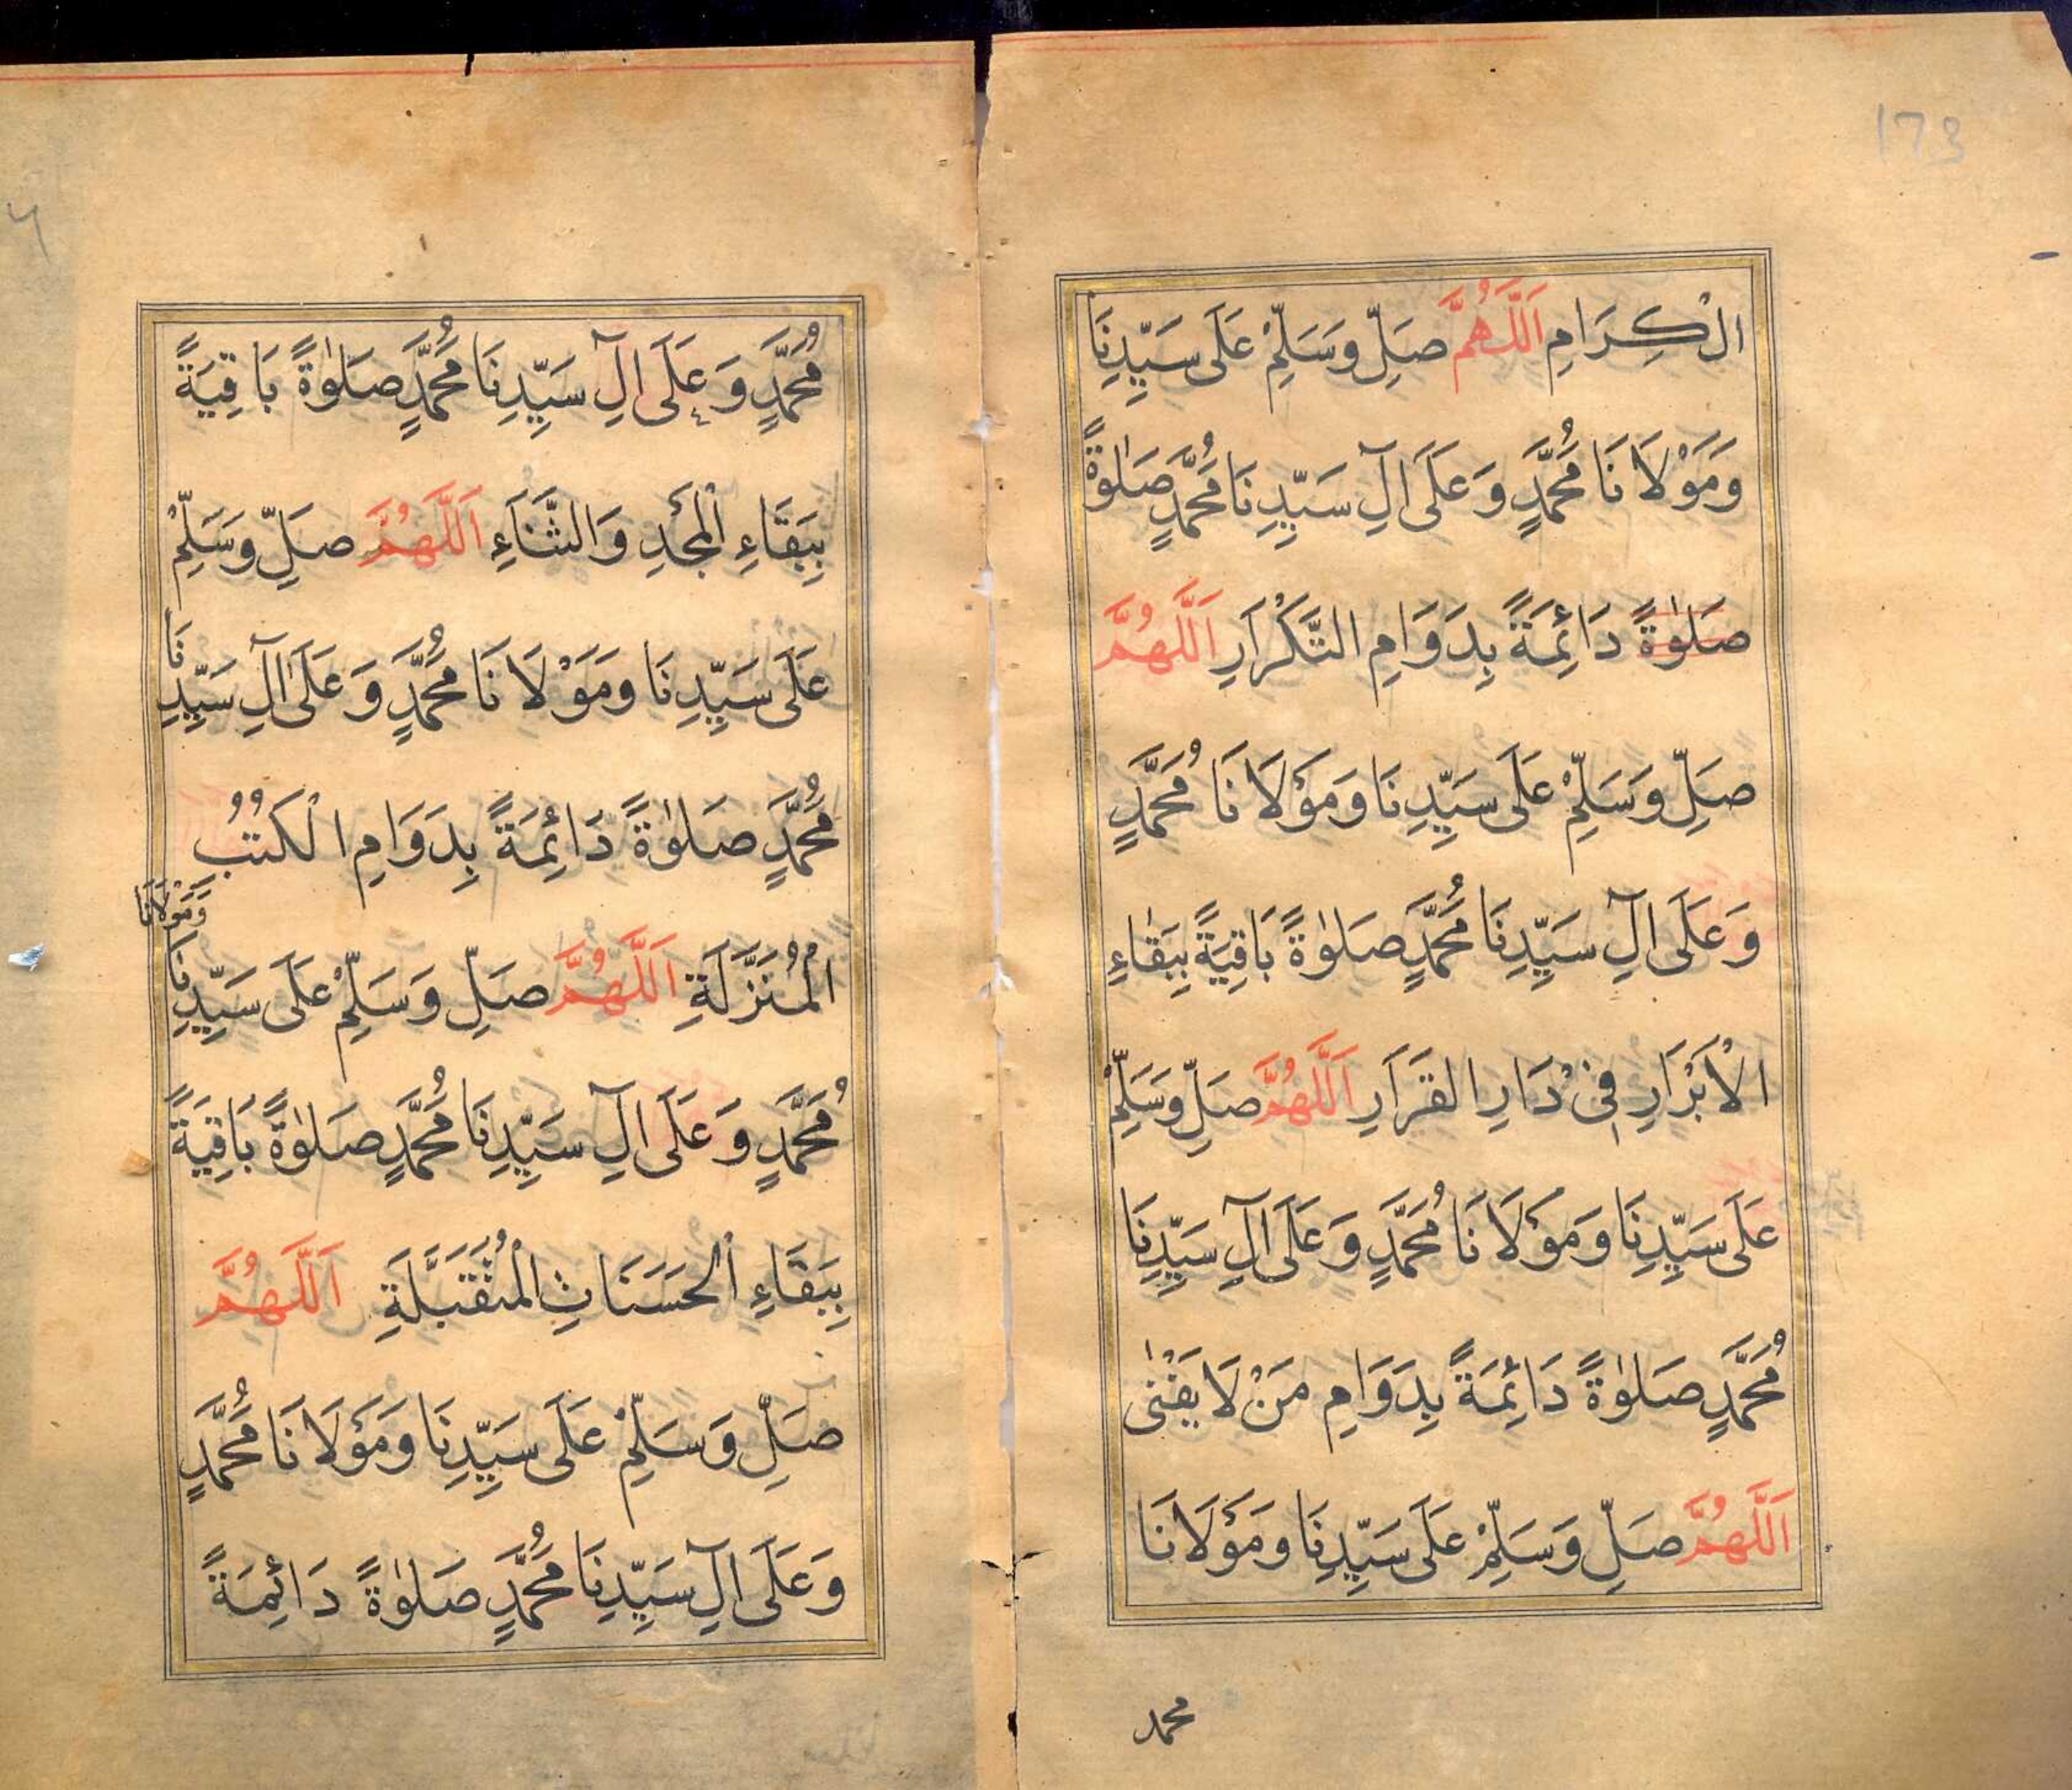 173
الْكِرَامِ اَللّٰهُمَّ صَلِّ وَسَلِّمْ عَلَى سَيِّدِنَا
وَمَوْلَانَا مُحَمَّدٍ وَعَلَى اٰلِ سَيِّدِنَا مُحَمَّدٍ صَلٰوةً
صَلٰوةً دَائِمَةً بِدَوَامِ التَّكْرَارِ اَللّٰهُمَّ
صَلِّ وَسَلِّمْ عَلَى سَيِّدِنَا وَمَوْلَانَا مُحَمَّدٍ
وَعَلَى اٰلِ سَيِّدِنَا مُحَمَّدٍ صَلٰوةً بَاقِيَةً بِبَقَاءِ
الْاَبْرَارِ فِىْ دَارِ القَرَارِ اَللّٰهُمَّ صَلِّ وَسَلِّمْ
عَلَى سَيِّدِنَا وَمَوْلَانَا مُحَمَّدٍ وَعَلَى اٰلِ سَيِّدِنَا
مُحَمَّدٍ صَلٰوةً دَائِمَةً بِدَوَامِ مَنْ لَا يَفْنٰى
اَللّٰهُمَّ صَلِّ وَسَلِّمْ عَلَى سَيِّدِنَا وَمَوْلَانَا
محمد
مُحَمَّدٍ وَعَلَى اٰلِ سَيِّدِنَا مُحَمَّدٍ صَلٰوةً بَاقِيَةً
بِبَقَاءِ الْمَجْدِ وَالثَّنَاءِ اَللّٰهُمَّ صَلِّ وَسَلِّمْ
عَلَى سَيِّدِنَا وَمَوْلَانَا مُحَمَّدٍ وَعَلَى اٰلِ سَيِّدِنَا
مُحَمَّدٍ صَلٰوةً دَائِمَةً بِدَوَامِ الْكُتُبِ
وَمَوْلَانَا
الْمُنَزَّلَةِ اَللّٰهُمَّ صَلِّ وَسَلِّمْ عَلَى سَيِّدِنَا
مُحَمَّدٍ وَعَلَى اٰلِ سَيِّدِنَا مُحَمَّدٍ صَلٰوةً بَاقِيَةً
بِبَقَاءِ الْحَسَنَاتِ الْمُتَقَبَّلَةِ اَللّٰهُمَّ
صَلِّ وَسَلِّمْ عَلَى سَيِّدِنَا وَمَوْلَانَا مُحَمَّدٍ
وَعَلَى اٰلِ سَيِّدِنَا مُحَمَّدٍ صَلٰوةً دَائِمَةً